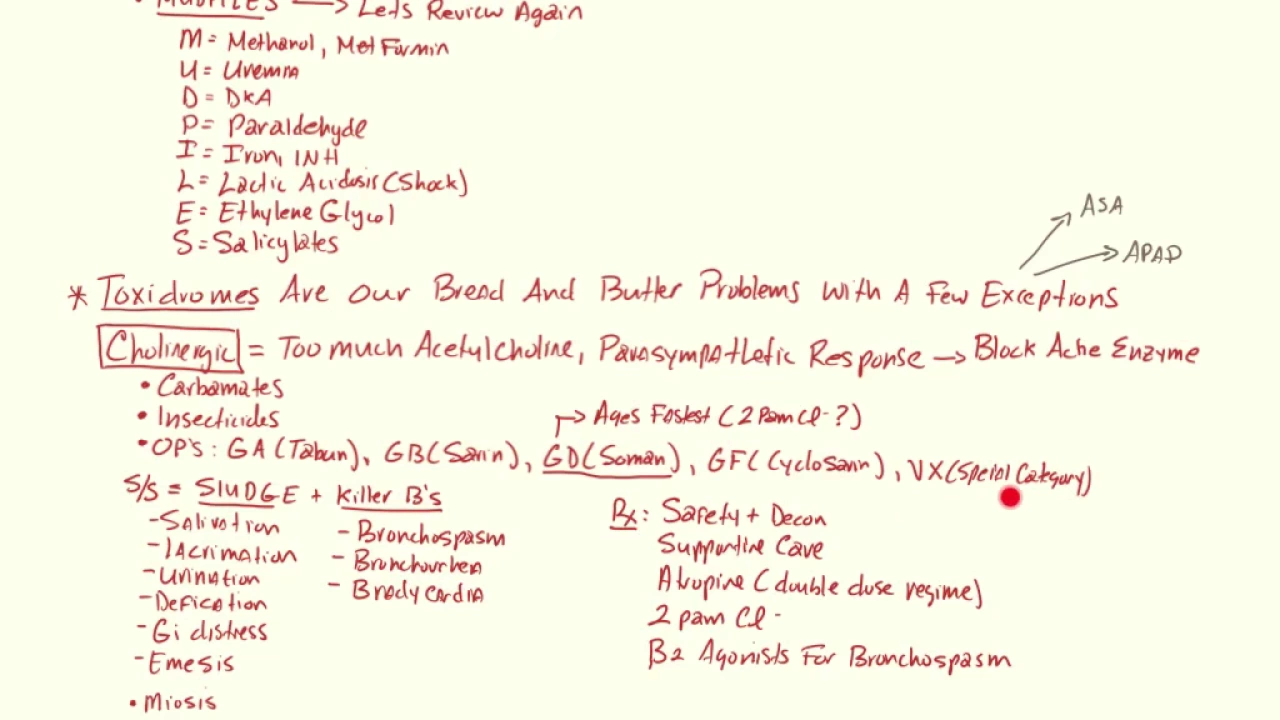 • MUDPILES → Lets Review Again
M = Methanol, Metformin
U = Uremia
D = DKA
P = Paraldehyde
I = Iron, INH
L = Lactic Acidosis (Shock)
E = Ethylene Glycol
S = Salicylates
ASA
APAP
* Toxidromes Are Our Bread And Butter Problems With A Few Exceptions
Cholinergic = Too much Acetylcholine, Parasympathetic Response → Block Ache Enzyme
• Carbamates
• Insecticides
→ Ages Fastest (2 Pam Cl- ?)
• OP'S: GA (Tabun), GB (Sarin), GD (Soman), GF (Cyclosarin), VX (Special Category)
S/S = SLUDGE + Killer B's
- Salivation
- Lacrimation
- Urination
- Defication
- Gi distress
- Emesis
• Miosis
- Bronchospasm
- Bronchorrhea
- Bradycardia
Rx: Safety + Decon
Supportive Care
Atropine (double dose regime)
2 pam Cl -
B2 Agonists For Bronchospasm